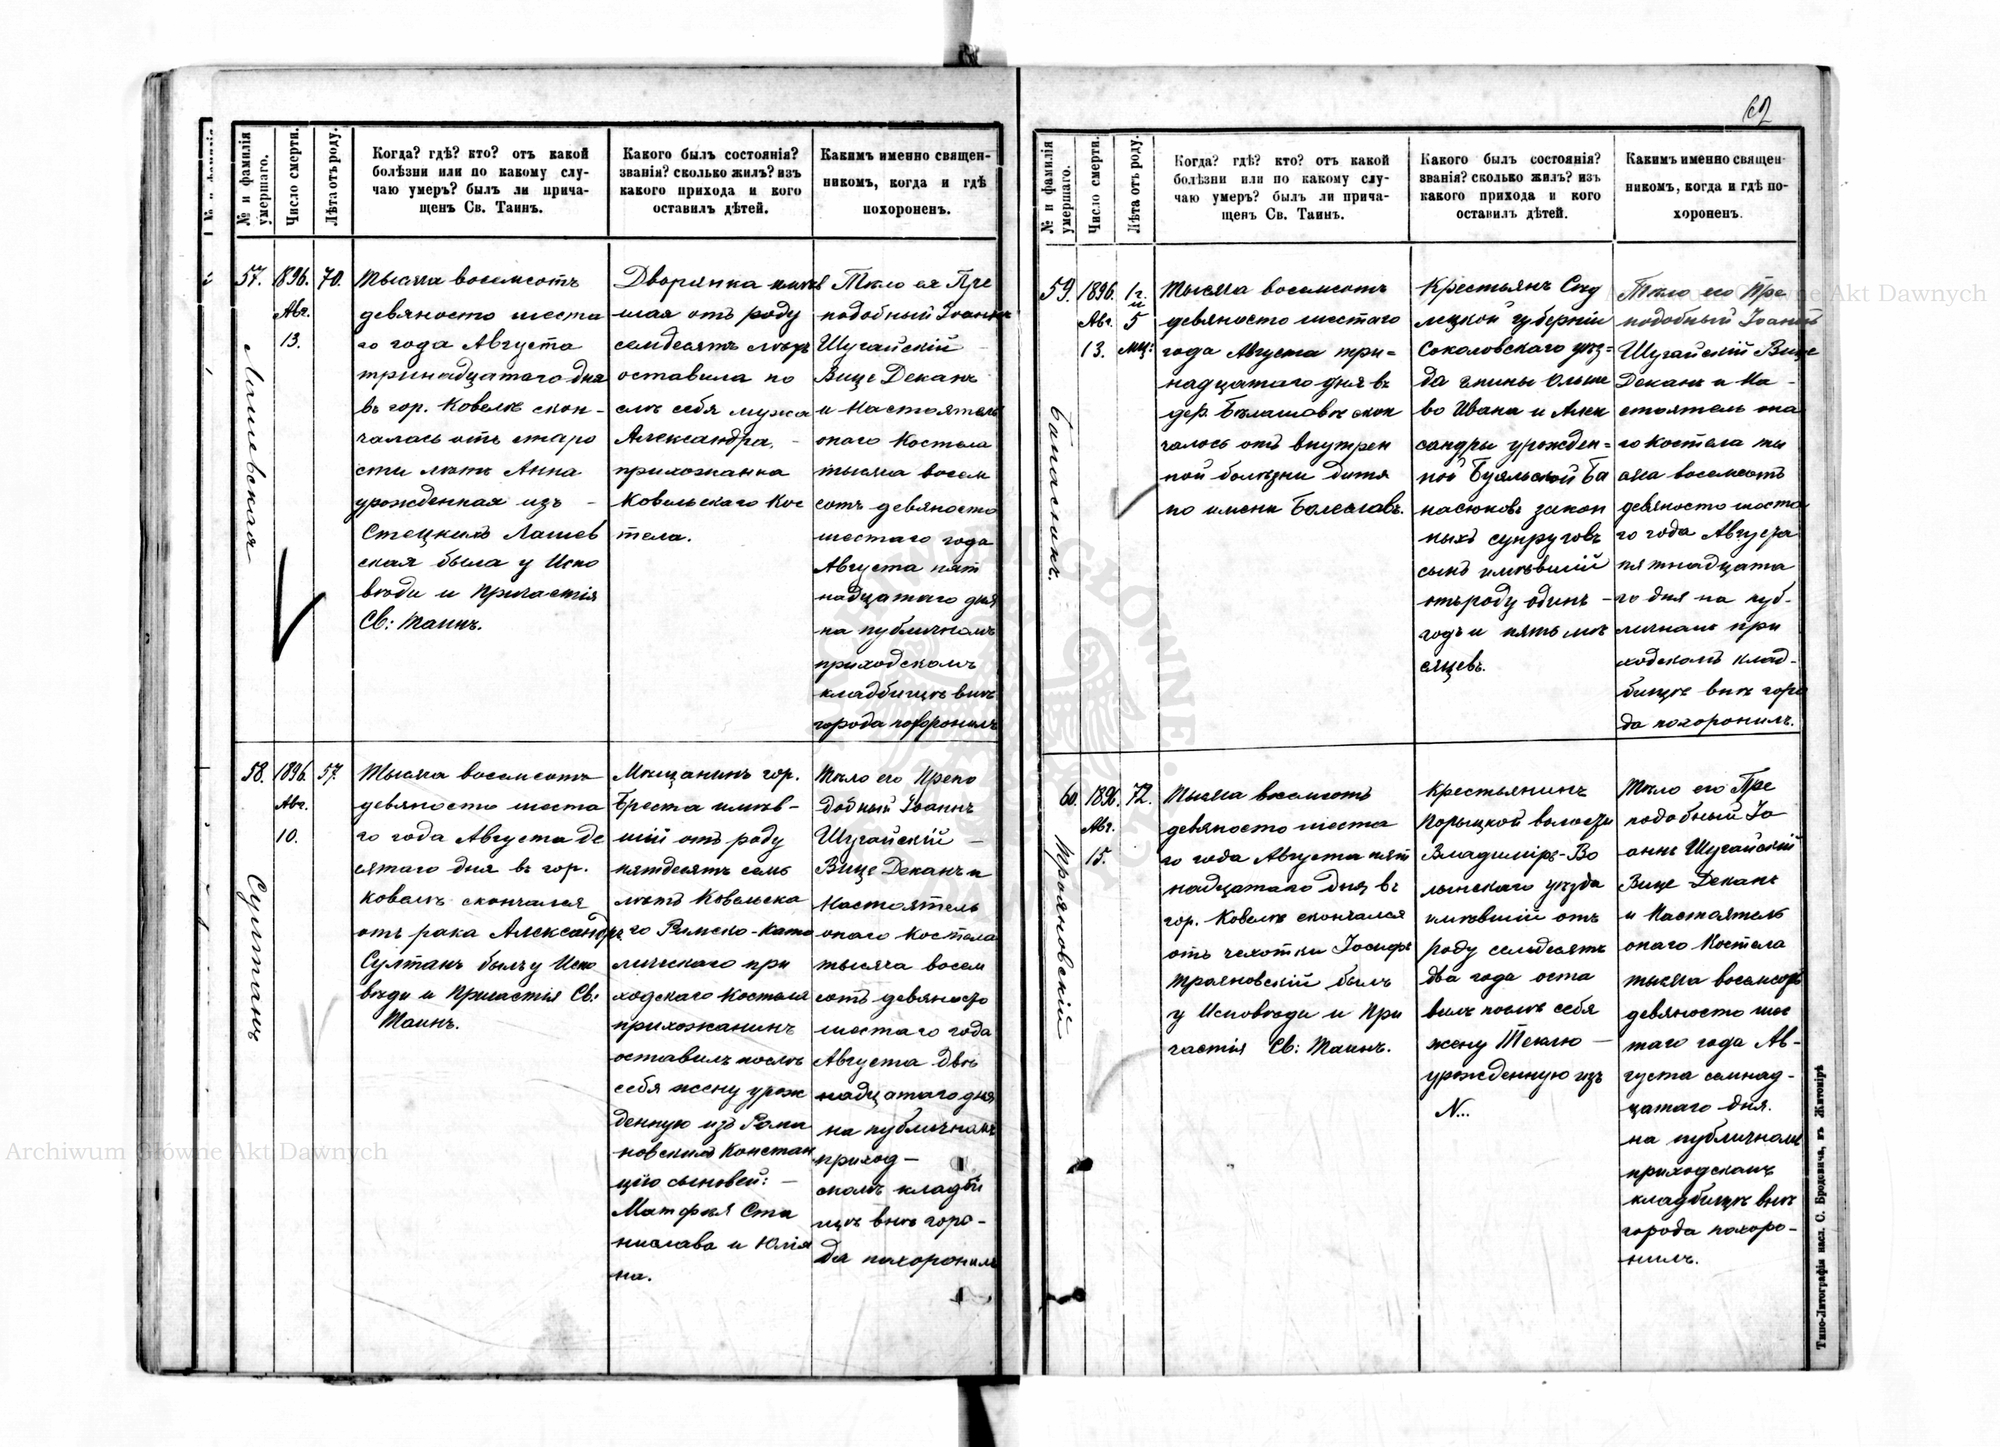 62
№ и фамилія умершаго.
Число смерти.
Лѣта отъ роду.
Когда? гдѣ? кто? отъ какой
болѣзни или по какому слу-
чаю умеръ? былъ ли прича-
щенъ Св. Таинъ.
Какого былъ состоянія?
званія? сколько жилъ? изъ
какого прихода и кого
оставилъ дѣтей.
Какимъ именно священ-
никомъ, когда и гдѣ
похороненъ.
57.
Лашевская
1896.
Авг.
13.
70.
Тысяча восемсотъ
девяносто шеста
го года Августа
тринадцатаго дня
въ гор. Ковелѣ скон-
чалась отъ старо
сти лѣтъ Анна
урожденная изъ -
Стецкихъ Лашев
ская была у Испо
вѣди и Причастія
Св: Таинъ.
Дворянка имѣв
шая отъ роду
семдесятъ лѣтъ
оставила по
слѣ себя мужа
Александра, -
прихожанка
Ковельскаго Кос
тела.
Тѣло ея Пре
подобный Іоаннъ
Шугайскій -
Вице Деканъ
и Настоятель
онаго Костела
тысяча восем
сотъ девяносто
шестаго года
Августа пят
надцатаго дня
на публичномъ
приходскомъ
кладбищѣ внѣ
города похоронилъ
58.
Султанъ
1896.
Авг.
10.
57.
Тысяча восемсотъ
девяносто шеста
го года Августа де
сятаго дня въ гор.
Ковелѣ скончался
отъ рака Александръ
Султанъ былъ у Испо
вѣди и Причастія Св:
Таинъ.
Мѣщанинъ гор.
Бреста имѣв-
шій отъ роду
пятдесятъ семь
лѣтъ Ковельска
го Римско-Като
лическаго при
ходскаго костела
прихожанинъ
оставилъ послѣ
себя жену урож
денную изъ Рома
новскихъ Констан
цію сыновей: -
Матфея Ста
нислава и Юлія
на.
Тѣло его Препо
добный Іоаннъ
Шугайскій -
Вице Деканъ и
Настоятель
онаго Костела
тысяча восем
сотъ девяносто
шестаго года
Августа двѣ
надцатаго дня
на публичномъ
приход-
скомъ кладби
щѣ внѣ горо-
да похоронилъ
№ и фамилія умершаго.
Число смерти.
Лѣта отъ роду.
Когда? гдѣ? кто? отъ какой
болѣзни или по какому слу-
чаю умеръ? былъ ли прича-
щенъ Св. Таинъ.
Какого былъ состоянія?
званія? сколько жилъ? изъ
какого прихода и кого
оставилъ дѣтей.
Какимъ именно священ-
никомъ, когда и гдѣ по-
хороненъ.
59.
1896.
Авг.
13.
1 г.
и
5
мц:
Тысяча восемсотъ
девяносто шестаго
года Августа три-
надцатаго дня въ
дер. Бѣлашовѣ скон
чалось отъ внутрен
ной болѣзни дитя
по имени Болеславъ.
Крестьянъ Сѣд
лецкой губерніи
Соколовскаго уѣз=
да гмины Ольше
во Ивана и Алек
сандры урожден=
ной Буяльской Ба
насюковъ закон
ныхъ супруговъ
сынъ имѣвшій
отъ роду одинъ -
годъ и пять мѣ
сяцевъ.
Тѣло его Пре
подобный Іоаннъ
Шугайскій Вице
Деканъ и На -
стоятель она
го Костела ты
сяча восемсотъ
девяносто шеста
го года Августа
пятнадцата
го дня на пуб-
личномъ при
ходскомъ клад-
бищѣ внѣ горо
да похоронилъ.
60.
Трояновскій
1896.
Авг.
15.
72.
Тысяча восемсотъ
девяносто шеста
го года Августа пят
надцатаго дня въ
гор. Ковелѣ скончался
отъ чахотки Іосифъ
Трояновскій былъ
у Исповѣди и При
частія Св: Таинъ.
Крестьянинъ
Порыцкой волости
Владимиръ-Во
лынскаго уѣзда
имѣвшій отъ
роду семдесятъ
два года оста
вилъ послѣ себя
жену Теклю -
урожденную изъ
N...
Тѣло его Пре
подобный Іо
аннъ Шугайскій
Вице Деканъ
и Настоятель
онаго Костела
тысяча восемсотъ
девяносто шес
таго года Ав-
густа семнад-
цатаго дня.
на публичномъ
приходскомъ
кладбищѣ внѣ
города похоро-
нилъ.
Типо-Литографія насл. С. Бродовича, въ Житомірѣ
Archiwum Główne Akt Dawnych
Archiwum Główne Akt Dawnych